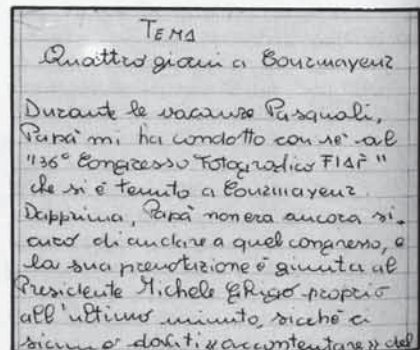 TEMA
Quattro giorni a Courmayeur
Durante le vacanze Pasquali,
Papà mi ha condotto con sè al
"36° Congresso Fotografico FIAF"
che si è tenuto a Courmayeur.
Dapprima, Papà non era ancora si-
curo di andare a quel congresso, e
la sua prenotazione è giunta al
Presidente Michele Ghigo proprio
all'ultimo minuto, sicchè ci
siamo dovuti «accontentare» del